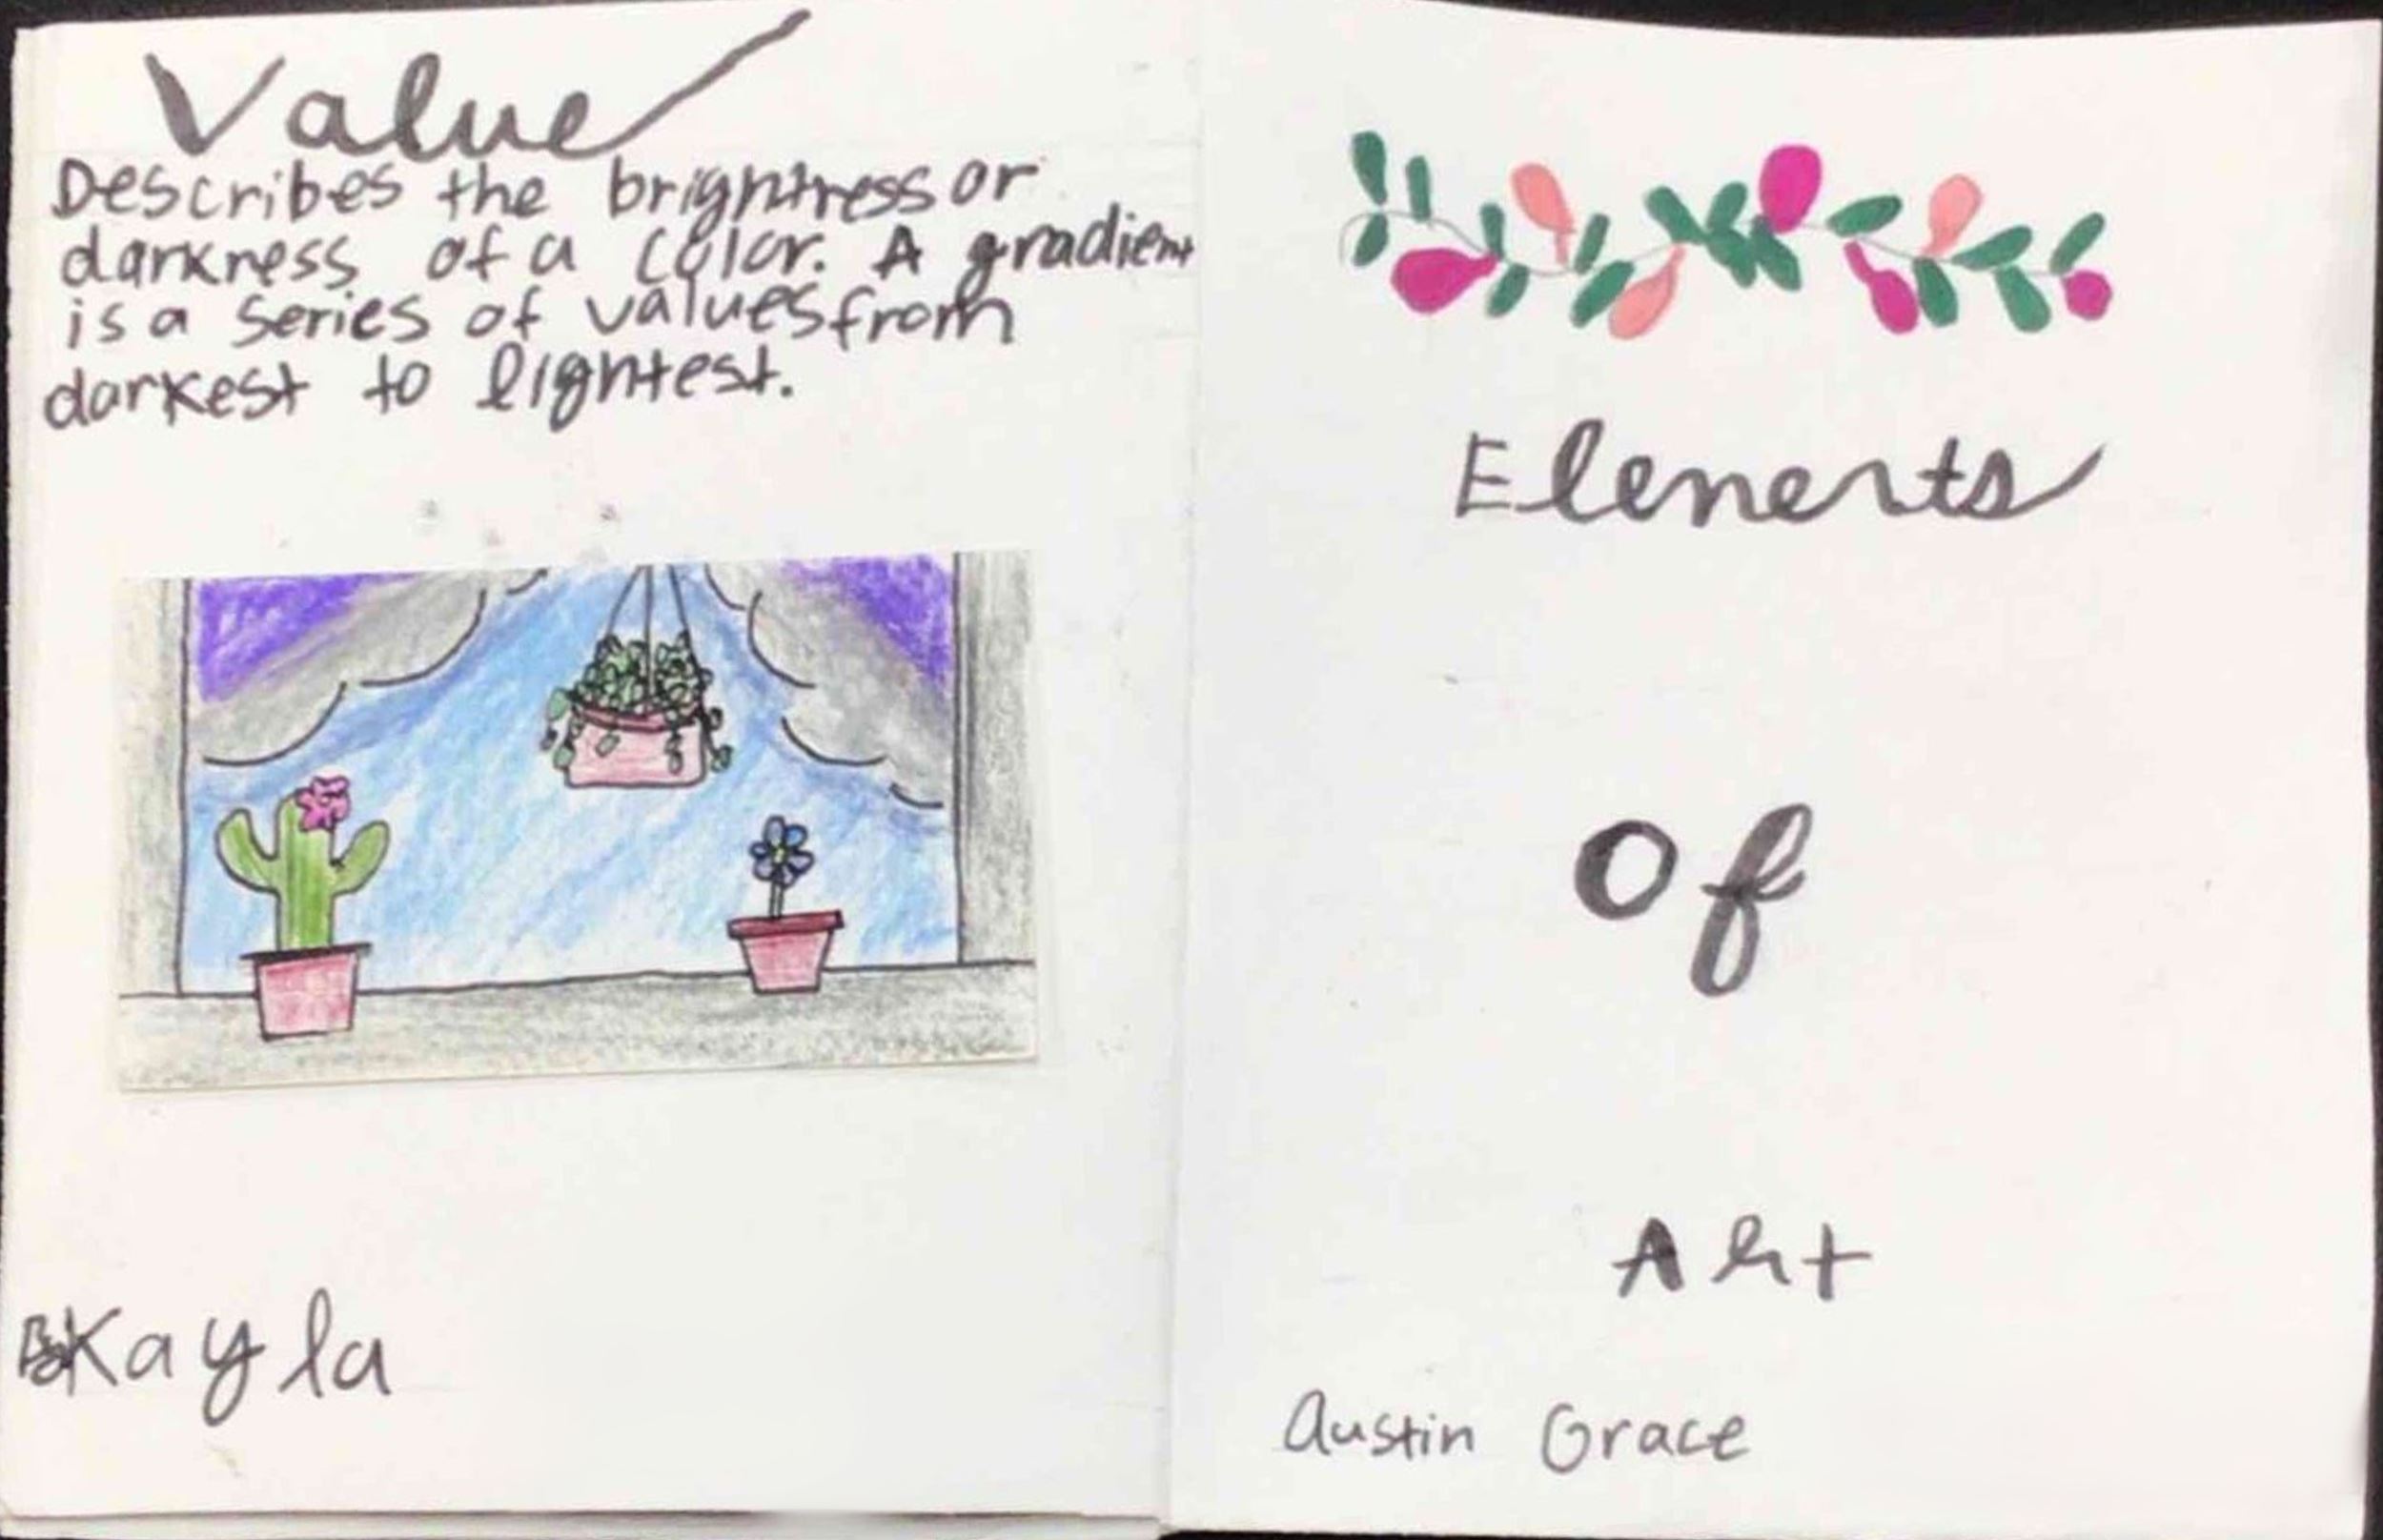 Value
Describes the brightness or
darkness of a color. A gradient
is a series of values from
darkest to lightest.
Kayla
Elements
Of
Art
Austin Grace